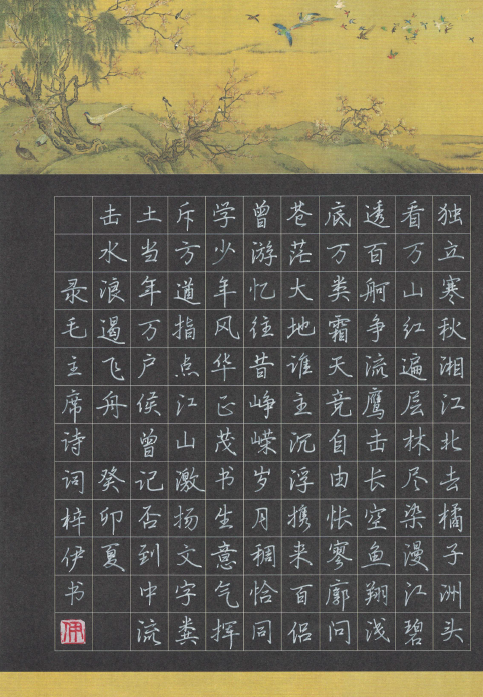 独立寒秋湘江北去橘子洲头
看万山红遍层林尽染漫江碧
透百舸争流鹰击长空鱼翔浅
底万类霜天竞自由怅寥廓问
苍茫大地谁主沉浮携来百侣
曾游忆往昔峥嵘岁月稠恰同
学少年风华正茂书生意气挥
斥方遒指点江山激扬文字粪
土当年万户侯曾记否到中流
击水浪遏飞舟 癸卯夏
录毛主席诗词梓伊书
伊